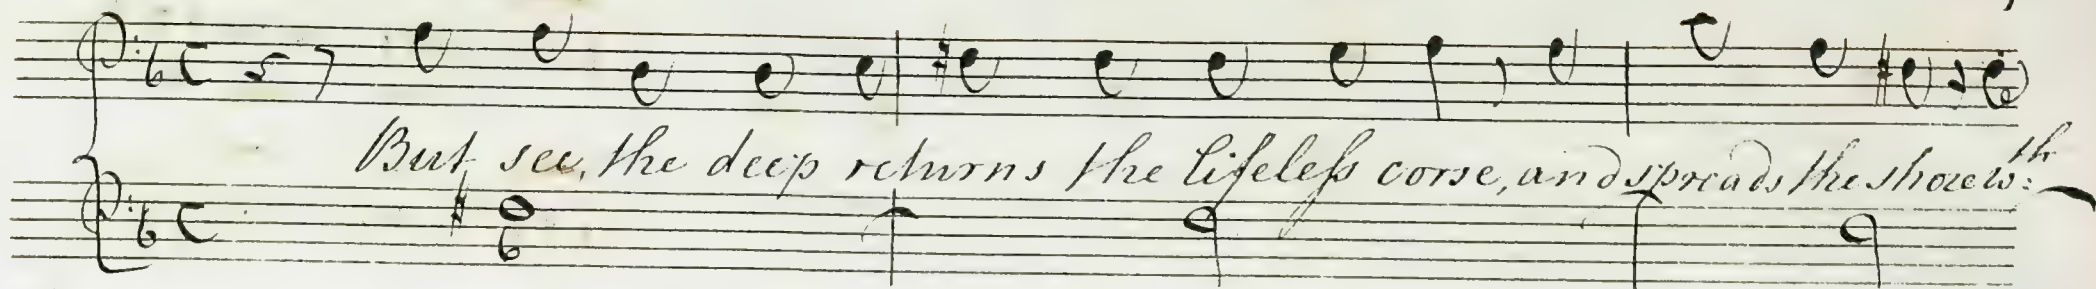 But see, the deep returns the lifeleſs corse, and spreads the shore wth:
6